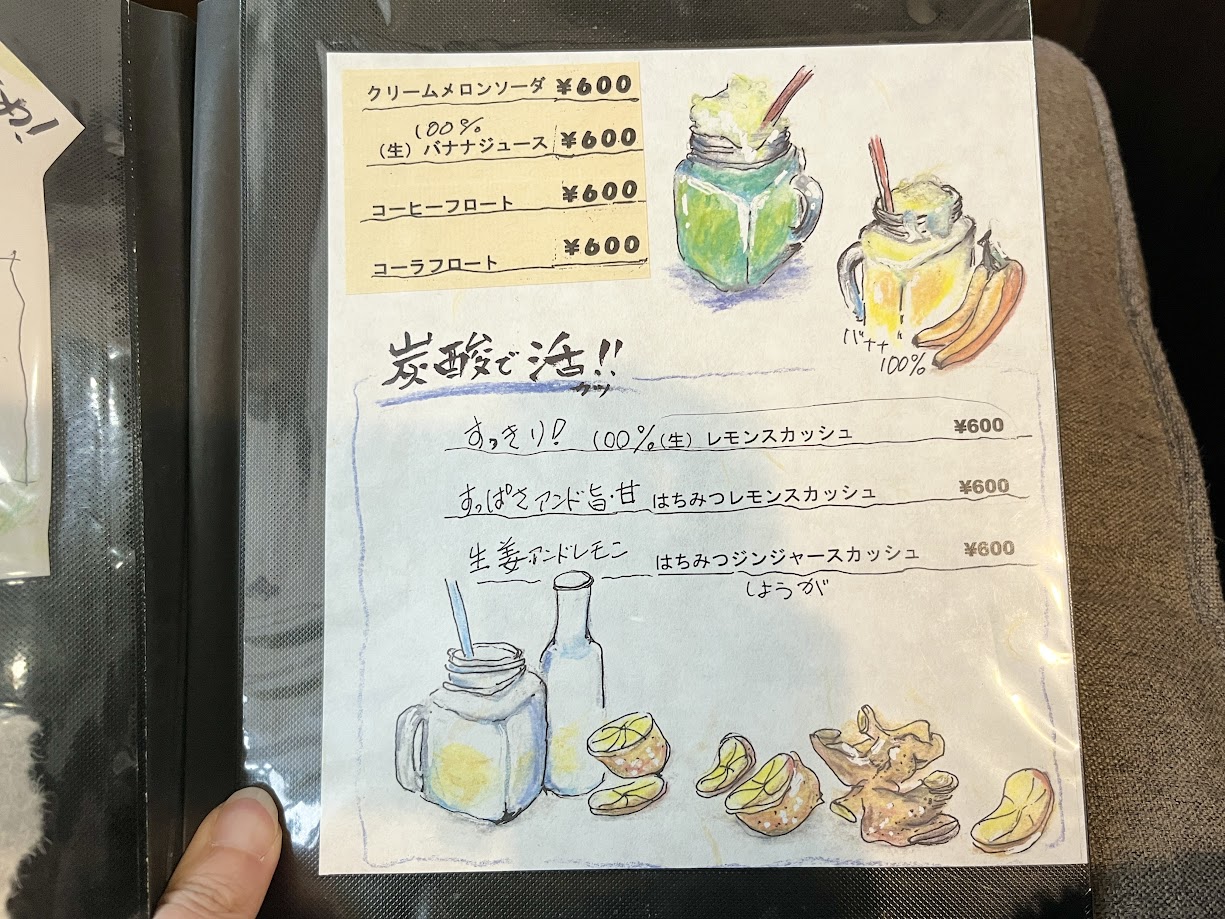 クリームメロンソーダ ¥600
100%
（生）バナナジュース ¥600
コーヒーフロート ¥600
コーラフロート ¥600
バナナ
100%
炭酸で活!!
カツ
すっきり! 100%（生）レモンスカッシュ ¥600
すっぱさアンド旨・甘 はちみつレモンスカッシュ ¥600
生姜アンドレモン はちみつジンジャースカッシュ ¥600
しょうが